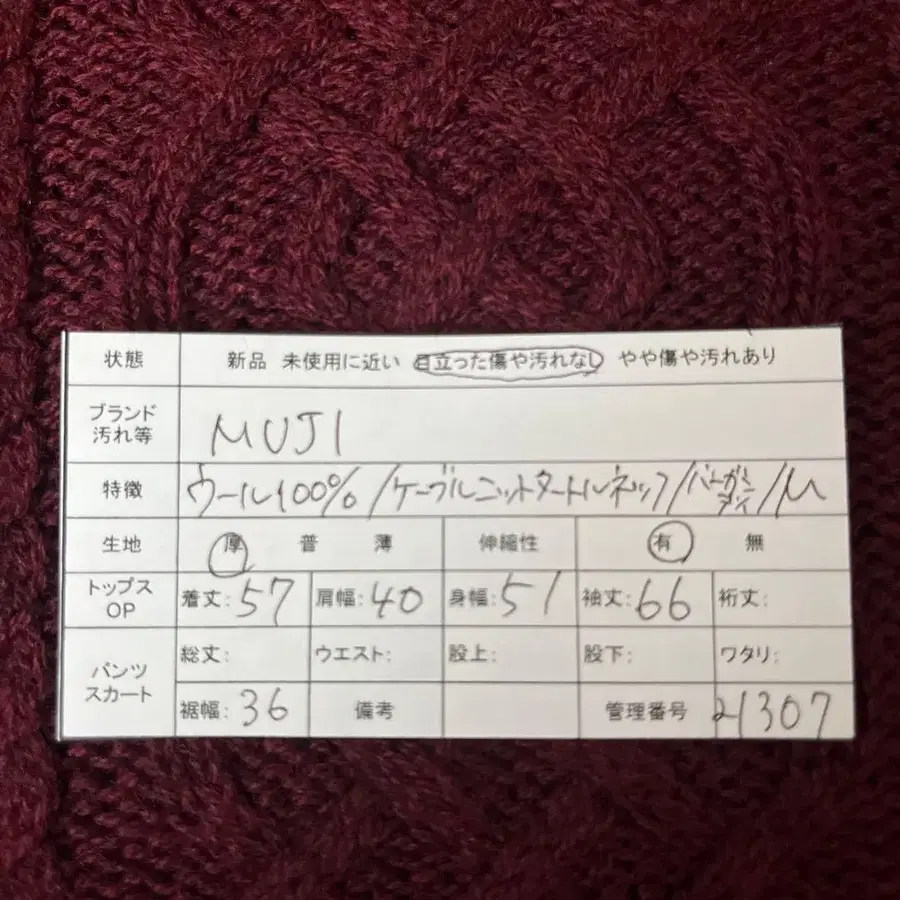 状態 新品 未使用に近い 目立った傷や汚れなし やや傷や汚れあり
ブランド
汚れ等 MUJI
特徴 ウール100%/ケーブルニットタートルネック/バーガンディ/M
生地 厚 普 薄 伸縮性 有 無
トップス
OP 着丈:57 肩幅:40 身幅:51 袖丈:66 裄丈:
パンツ
スカート 総丈: ウエスト: 股上: 股下: ワタリ:
裾幅:36 備考 管理番号 21307